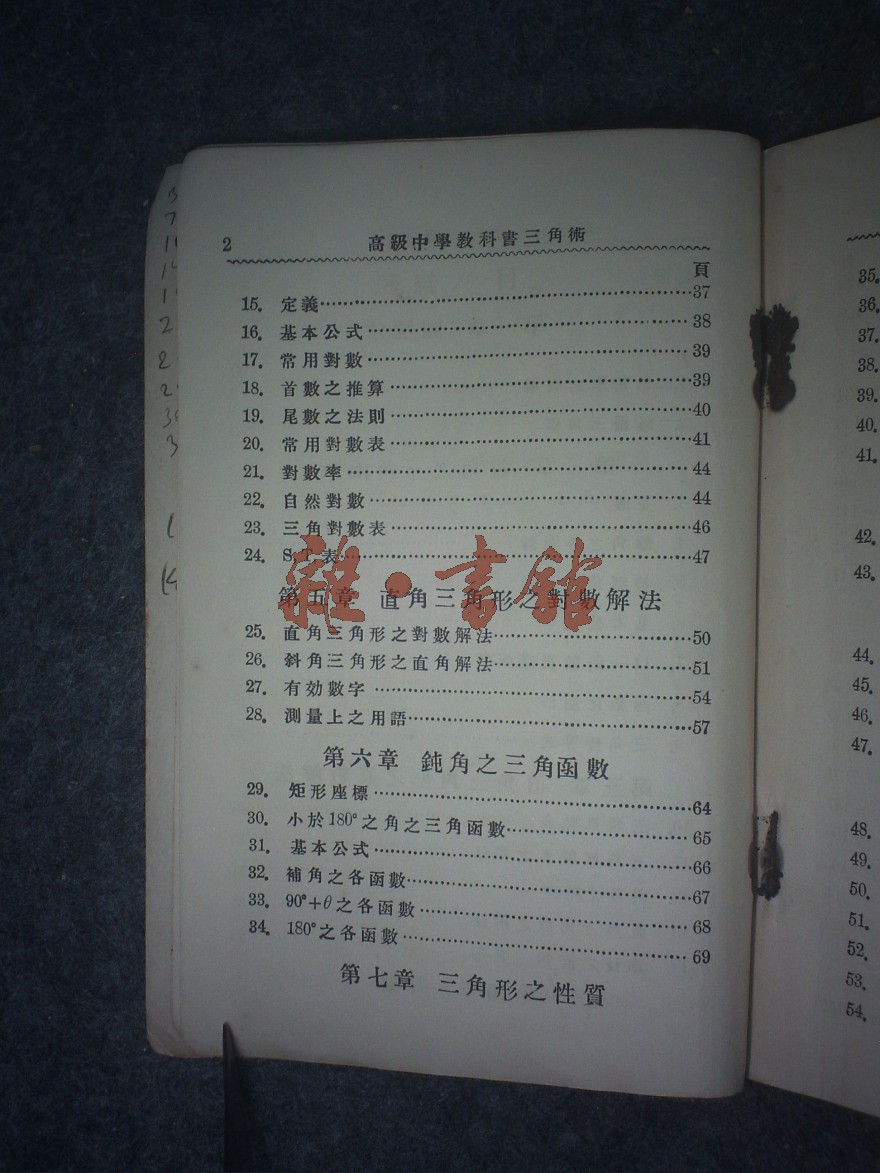 2 高級中學教科書三角術
頁
15. 定義 37
16. 基本公式 38
17. 常用對數 39
18. 首數之推算 39
19. 尾數之法則 40
20. 常用對數表 41
21. 對數率 44
22. 自然對數 44
23. 三角對數表 46
24. S,T表 47
第五章 直角三角形之對數解法
25. 直角三角形之對數解法 50
26. 斜角三角形之直角解法 51
27. 有効數字 54
28. 測量上之用語 57
第六章 鈍角之三角函數
29. 矩形座標 64
30. 小於180°之角之三角函數 65
31. 基本公式 66
32. 補角之各函數 67
33. 90°+θ之各函數 68
34. 180°之各函數 69
第七章 三角形之性質
雜·書館
35.
36.
37.
38.
39.
40.
41.
42.
43.
44.
45.
46.
47.
48.
49.
50.
51.
52.
53.
54.